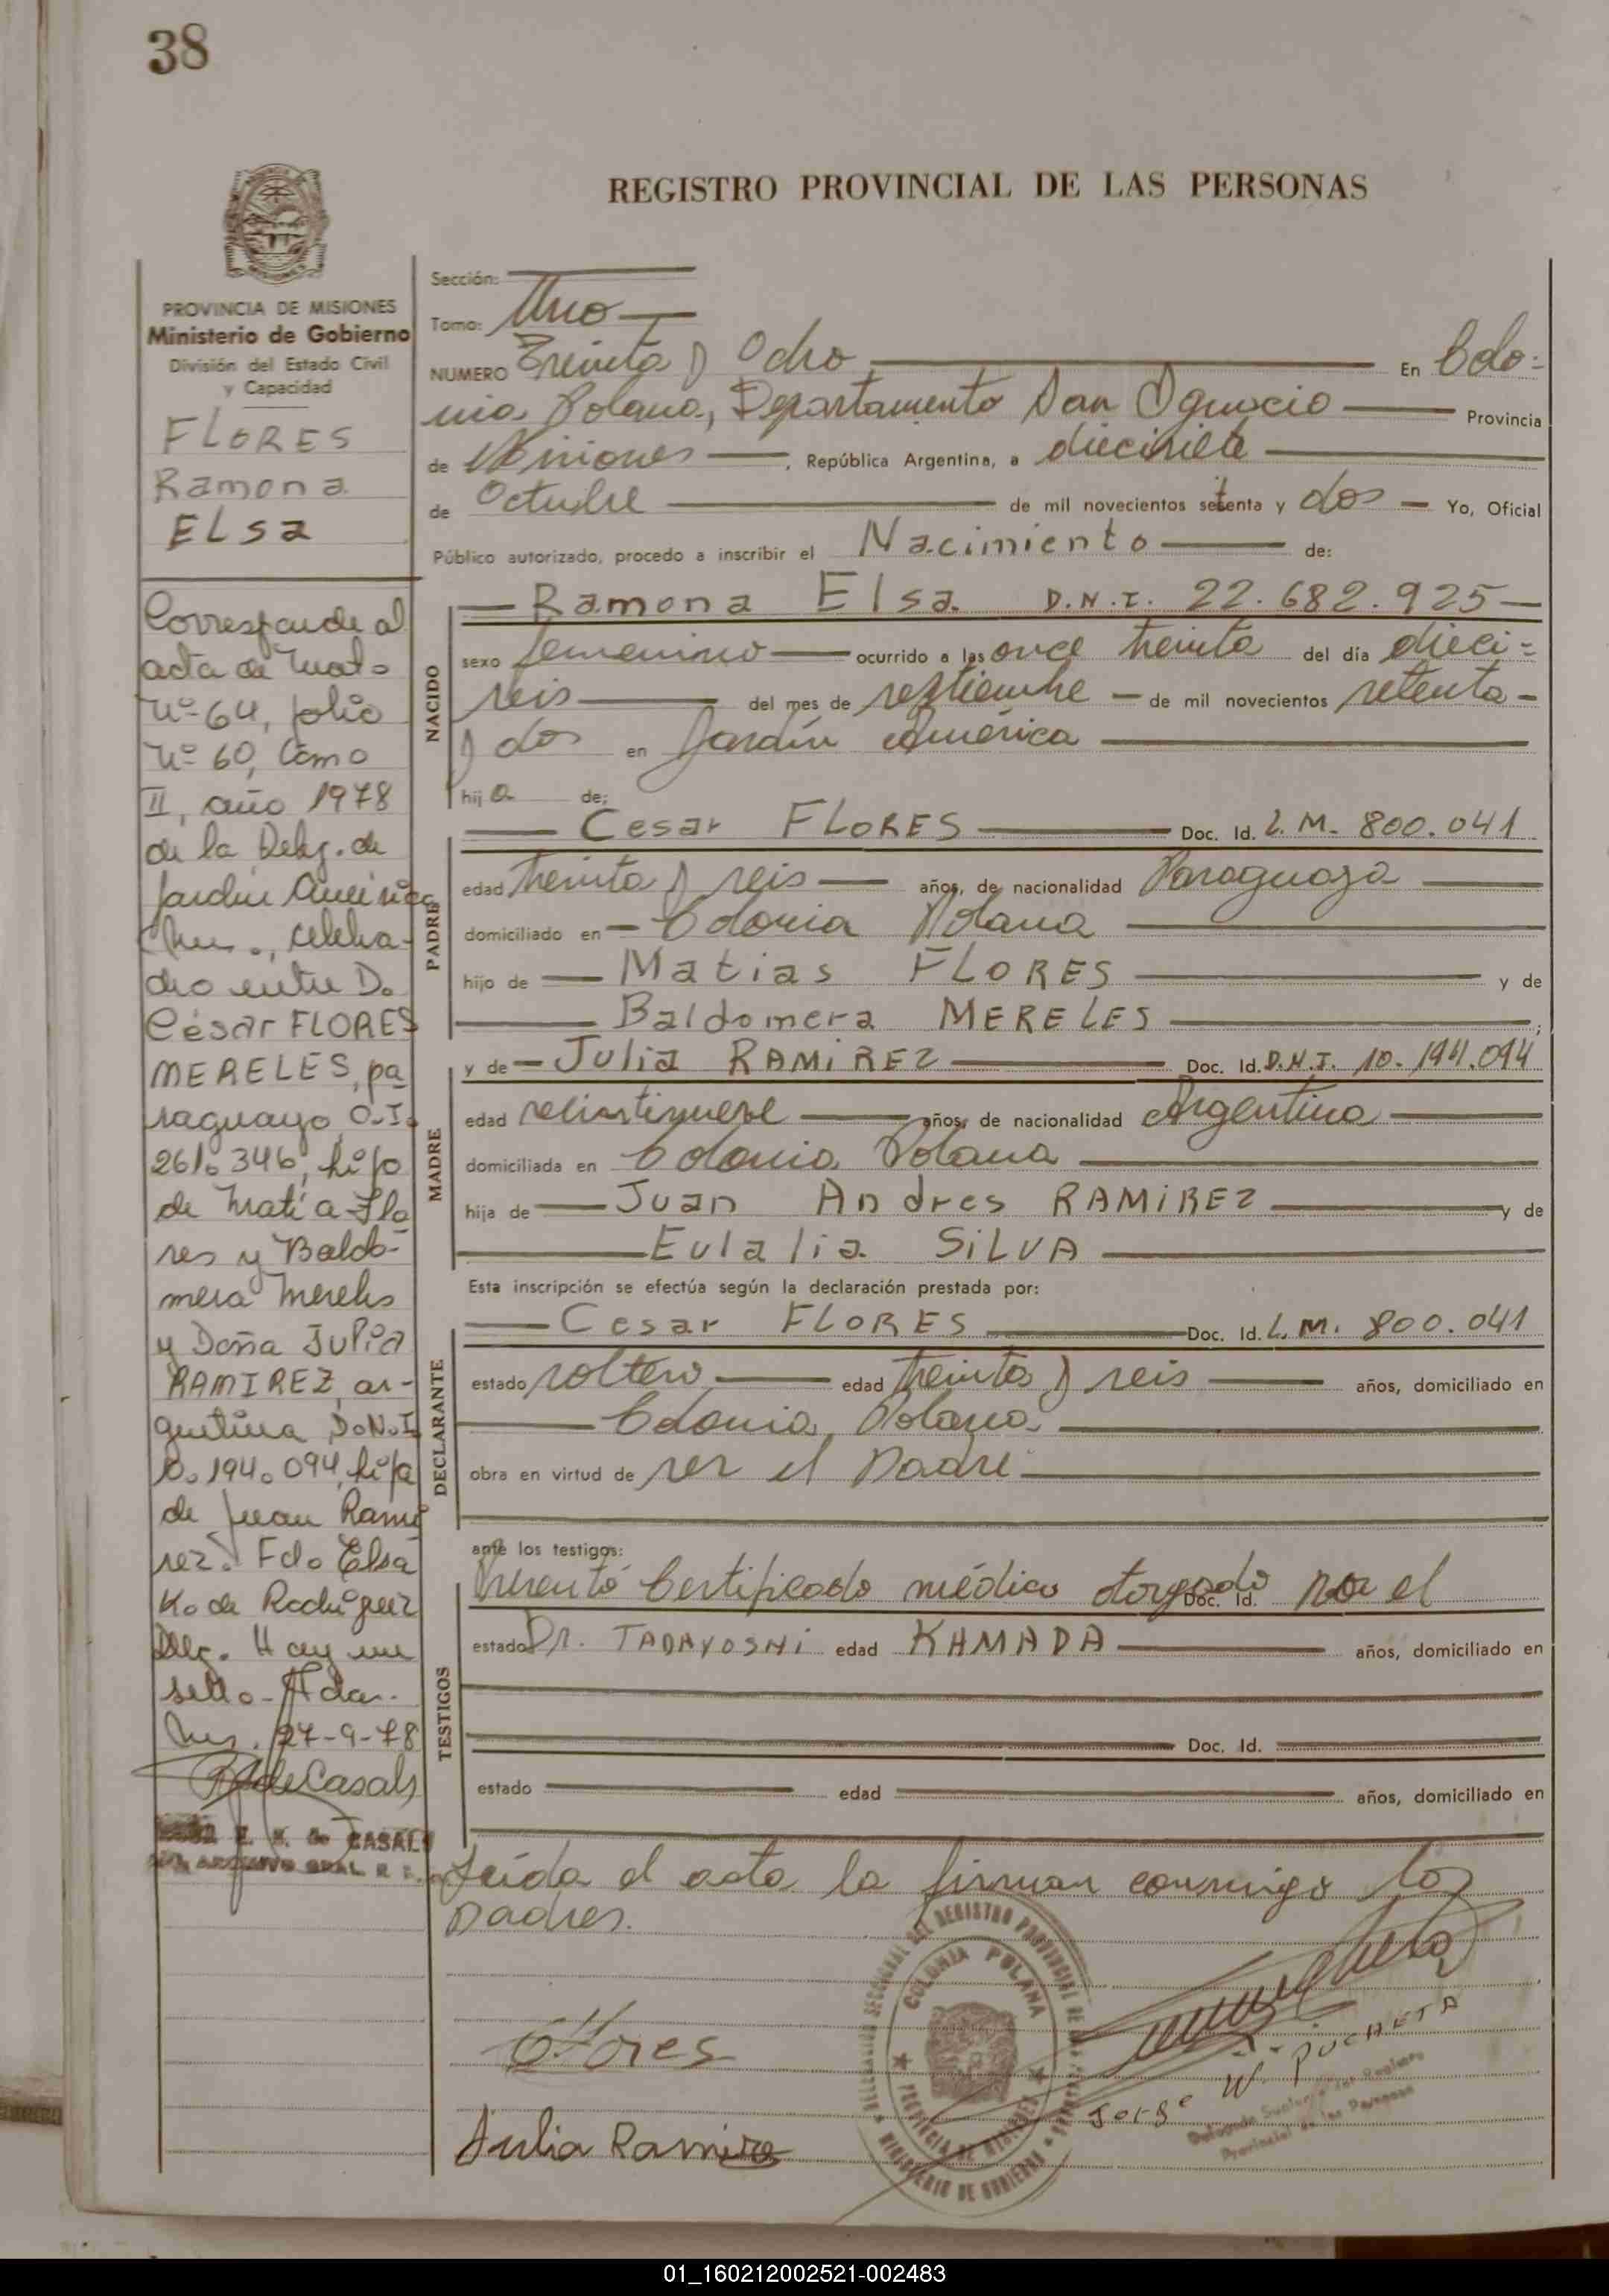 38
REGISTRO PROVINCIAL DE LAS PERSONAS
PROVINCIA DE MISIONES
Ministerio de Gobierno
División del Estado Civil
y Capacidad
FLORES
Ramona
ELsa
Corresponde al
acta de Mat.
Nº 64, folio
Nº 60, tomo
II, año 1978
de la Deleg. de
Jardín América
Mnes., celebra-
do entre D.
César FLORES
MERELES, pa
raguayo, C.I.
261.346, hijo
de Matía Flo
res y Baldo-
mera Mereles
y Doña Julia
RAMIREZ, ar-
gentina D.N.I.
10.194.094, hija
de Juan Ramí
rez. Fdo Elsa
K. de Rodríguez
Deleg. Hay un
sello-
Mnes. 27-9-78
de Casals
de CASALS
ARCHIVO GRAL R
Sección:
Tomo: Uno
NUMERO Treinta y Ocho En Colo-
nia Polana, Departamento San Ignacio Provincia
de Misiones, República Argentina, a diecisiete
de Octubre de mil novecientos setenta y dos Yo, Oficial
Público autorizado, procedo a inscribir el Nacimiento de:
Ramona Elsa D.N.I. 22.682.925
NACIDO
sexo femenino ocurrido a las once treinta del día dieci-
seis del mes de septiembre de mil novecientos setenta
y dos en Jardín América
hija de:
Cesar FLORES Doc. Id. L.M. 800.041
PADRE
edad treinta y seis años, de nacionalidad Paraguaya
domiciliado en Colonia Polana
hijo de Matias FLORES y de
Baldomera MERELES;
y de Julia RAMIREZ Doc. Id. D.N.I. 10.194.094
MADRE
edad veintinueve años, de nacionalidad Argentina
domiciliada en Colonia Polana
hija de Juan Andres RAMIREZ y de
Eulalia SILVA
Esta inscripción se efectúa según la declaración prestada por:
Cesar FLORES Doc. Id. L.M. 800.041
DECLARANTE
estado soltero edad treinta y seis años, domiciliado en
Colonia Polana
obra en virtud de ser el Padre
ante los testigos:
Presentó Certificado médico otorgado Doc. Id. por el
TESTIGOS
estado Dr. TADAYOSHI edad KAMADA años, domiciliado en
Doc. Id.
estado edad años, domiciliado en
Leída el acta la firman conmigo los
Padres.
CFlores
Julia Ramirez
COLONIA POLANA
PROVINCIA DE MISIONES
MINISTERIO DE GOBIERNO
Jorge W. PUCHETA
Provincial de las Personas
01_160212002521-002483